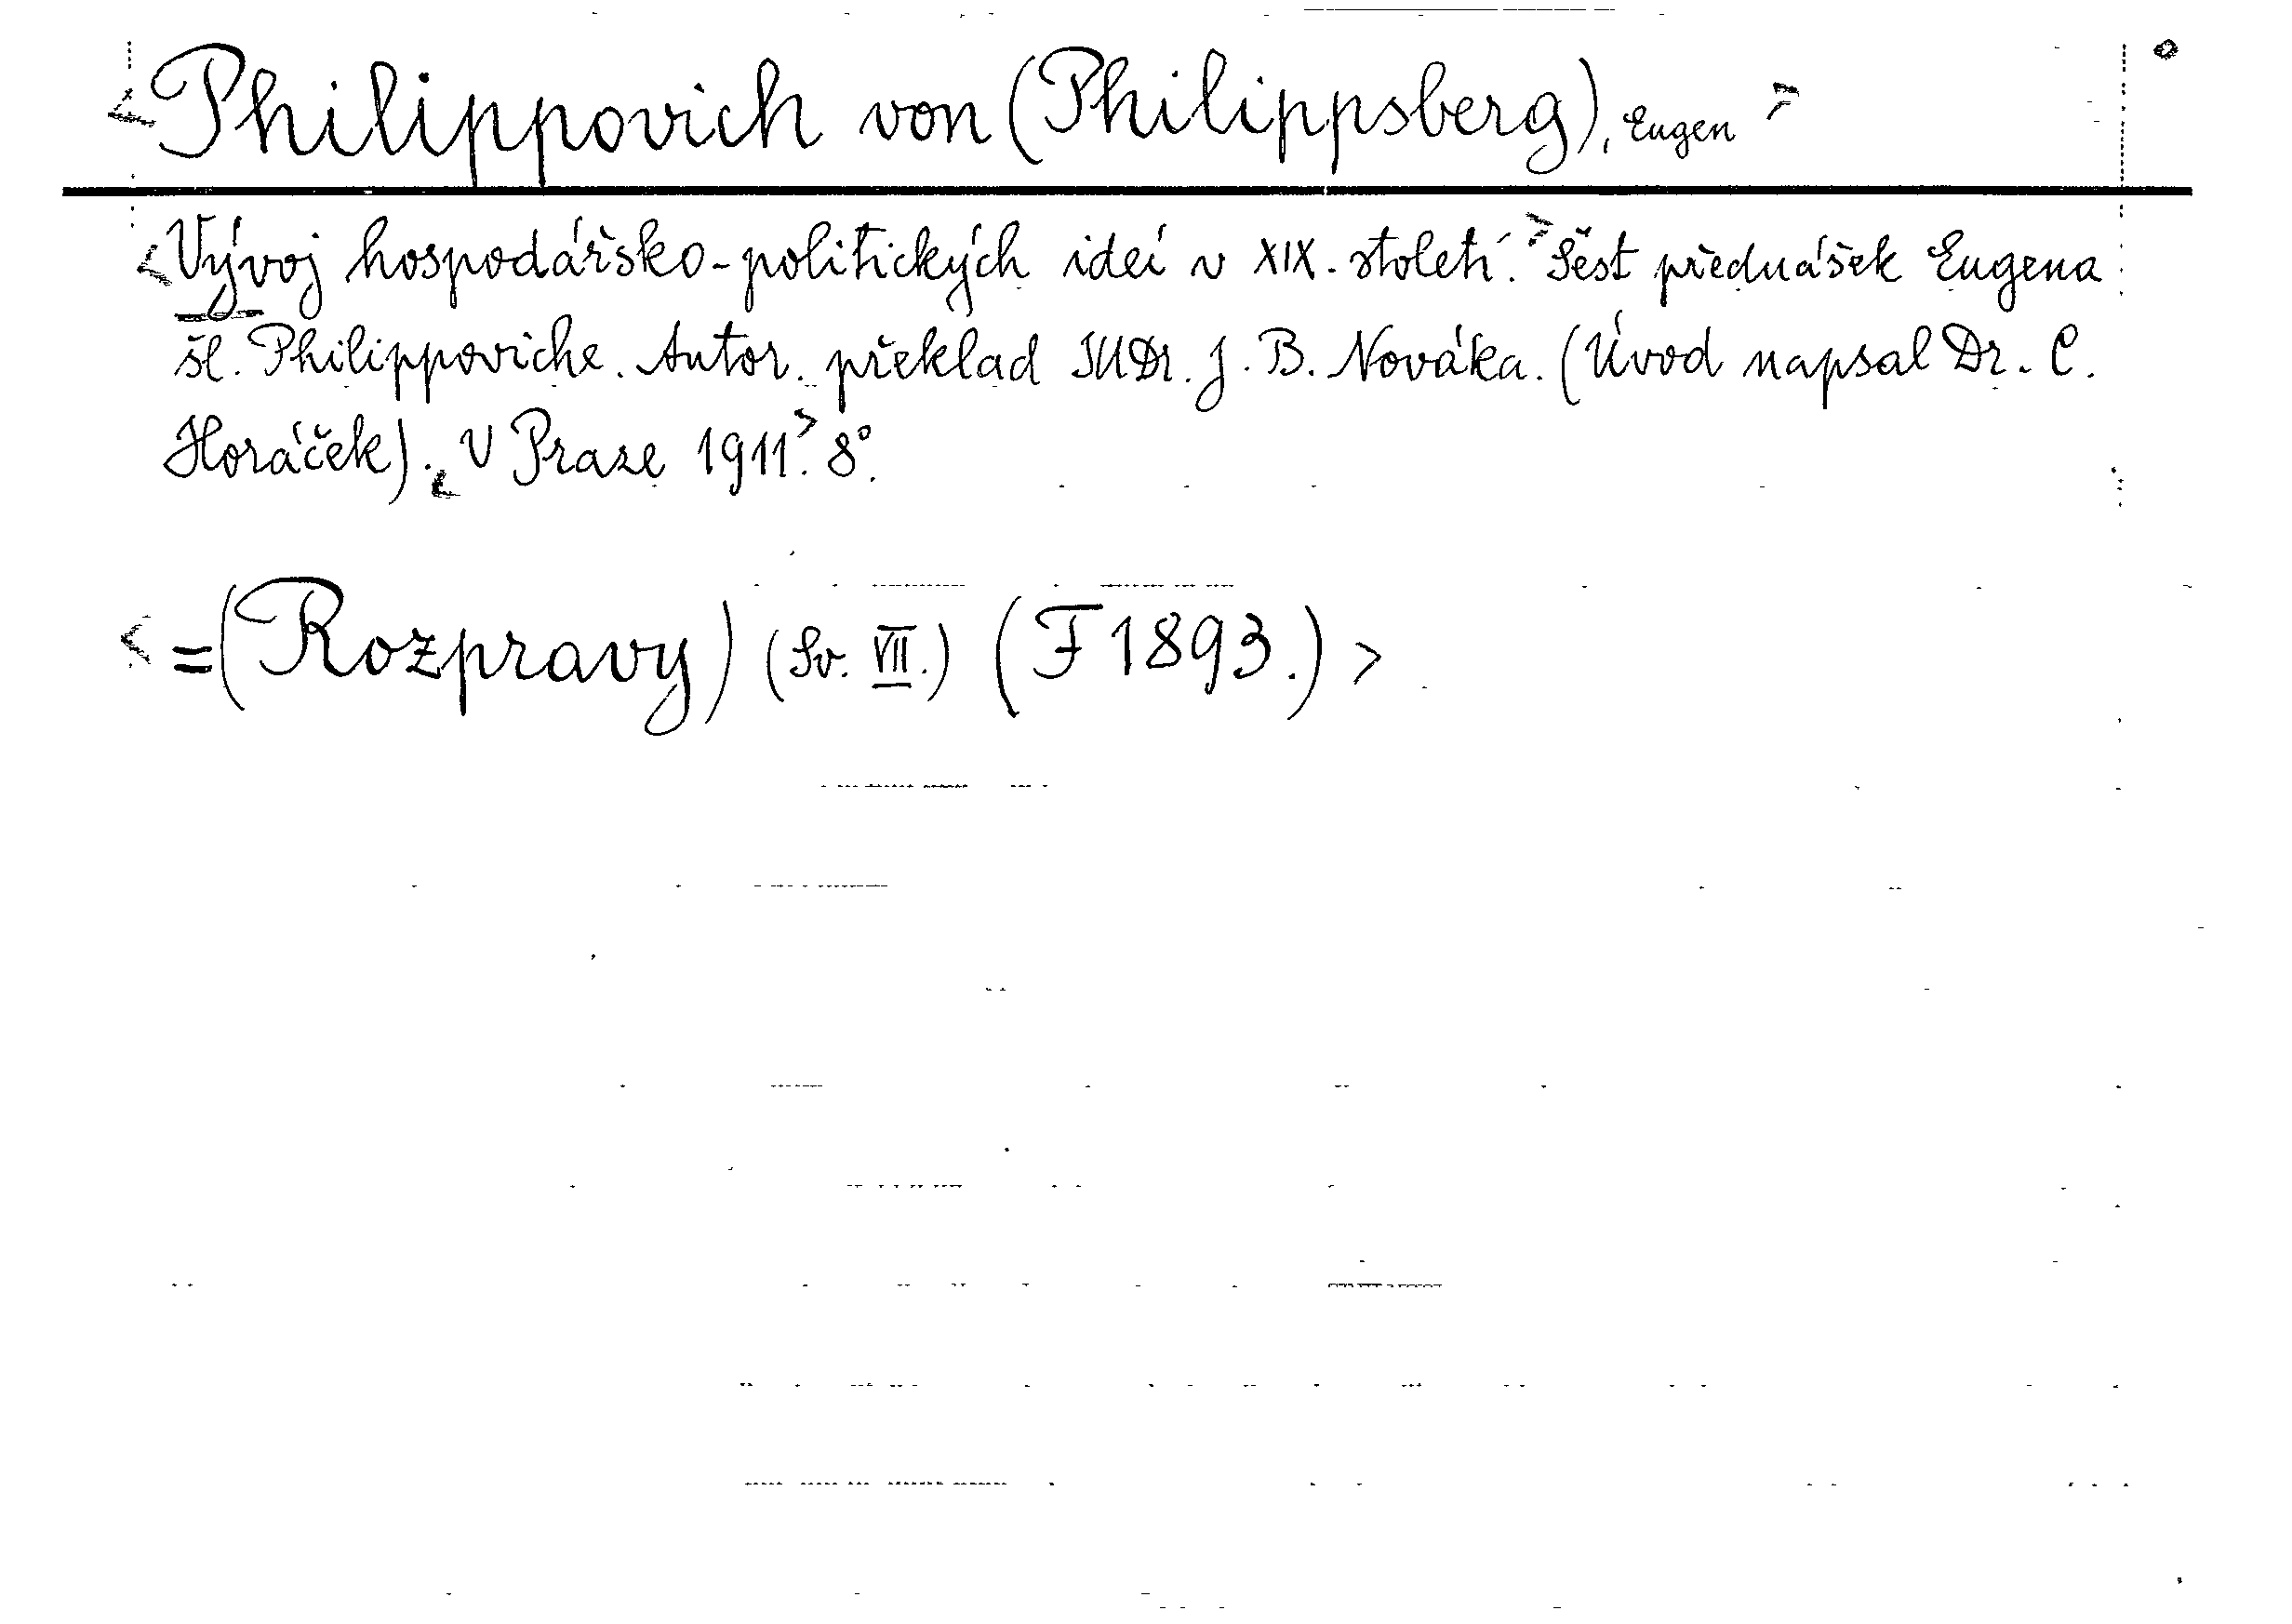 <Philippovich von (Philippsberg), Eugen>
<Vývoj hospodářsko-politických ideí v XIX. století.> Šest přednášek Eugena
šl. Philippoviche. Autor. překlad JUDr. J. B. Nováka. (Úvod napsal Dr. C.
Horáček). <V Praze 1911.> 8°.
<=(Rozpravy) (Sv. VII.) (F 1893.)>